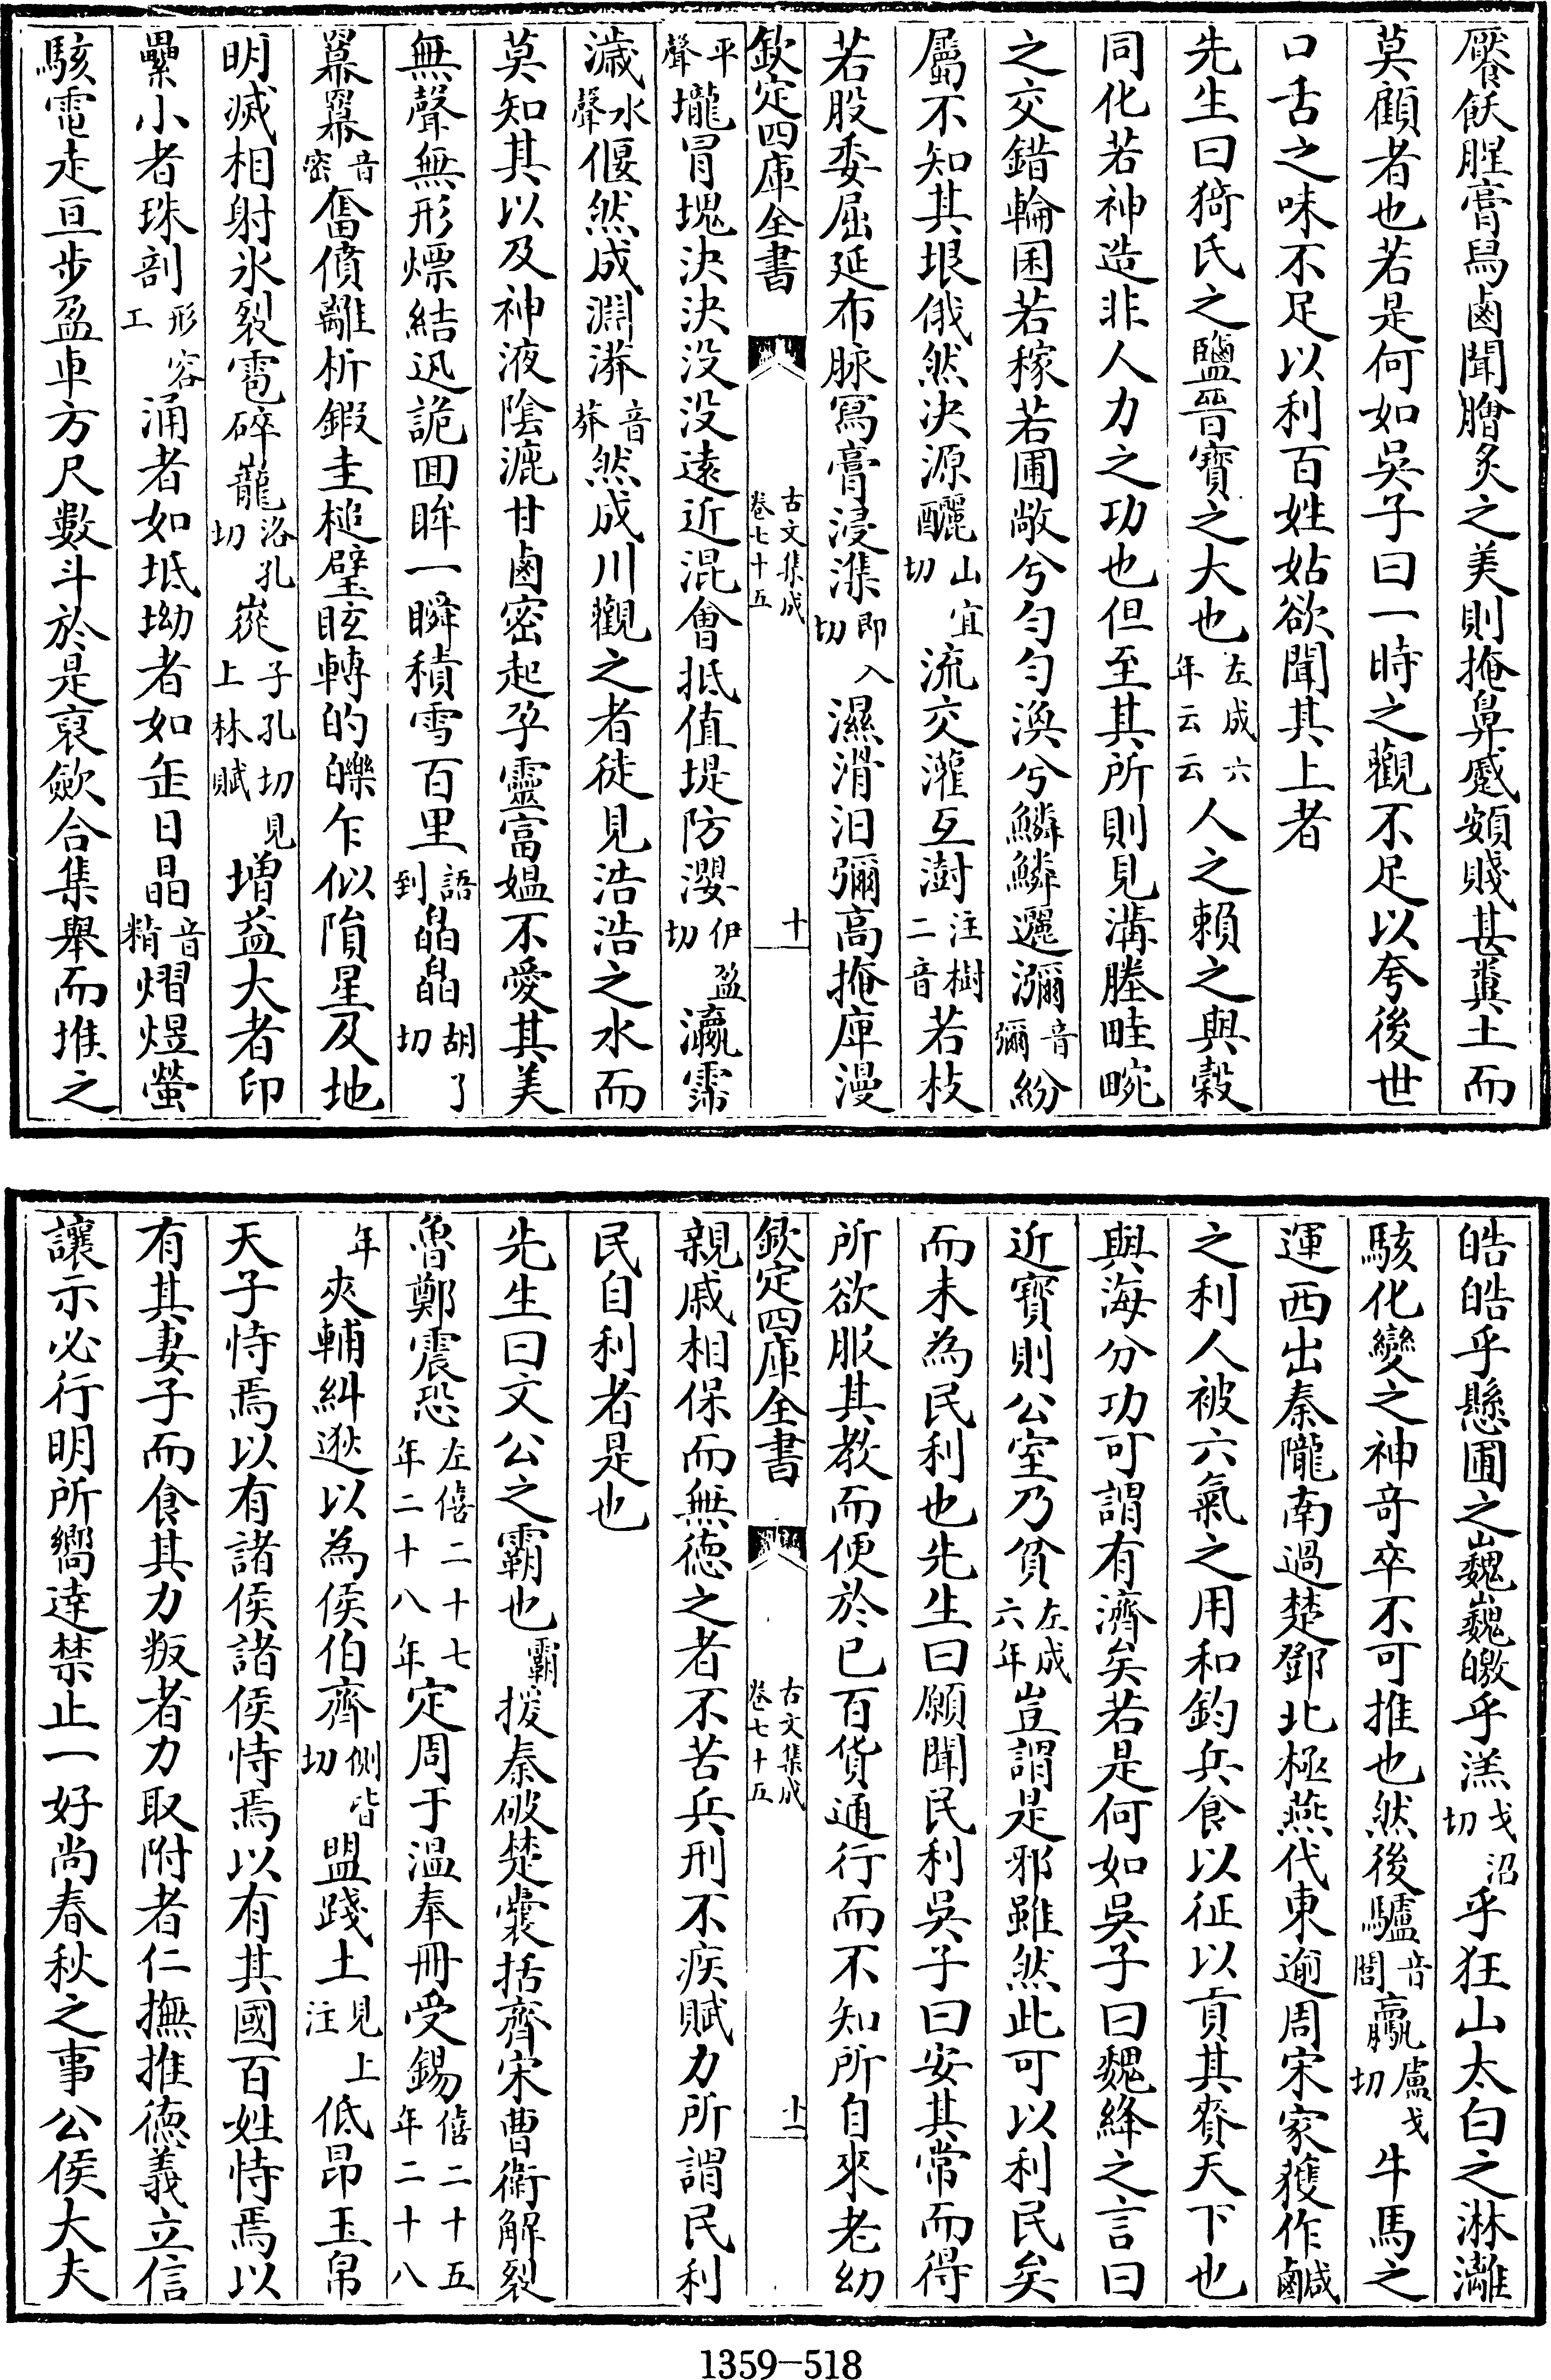 饜飫腥膏舄鹵聞膾炙之美則掩鼻蹙頞賤甚糞土而
莫顧者也若是何如吳子曰一時之觀不足以夸後世
口舌之味不足以利百姓姑欲聞其上者
先生曰猗氏之鹽晉寶之大也左成六年云云人之賴之與穀
同化若神造非人力之功也但至其所則見溝塍畦畹
之交錯輪囷若稼若圃敞兮勻勻渙兮鱗鱗邐瀰音彌紛
屬不知其垠俄然決源釃山宜切流交灌互澍注樹二音若枝
若股委屈延布脉寫膏浸潗即入切濕滑汩彌高掩庳漫
欽定四庫全書 古文集成卷七十五 十
平聲壠冒塊決決没没遠近混會抵值堤防瀴伊盈切瀛霈
濊水聲偃然成淵漭音莽然成川觀之者徒見浩浩之水而
莫知其以及神液陰漉甘鹵密起孕靈富媪不愛其美
無聲無形熛結迅詭囬眸一瞬積雪百里語到皛皛胡了切
羃羃音密奮僨離析鍜圭椎璧眩轉的皪乍似隕星及地
明滅相射氷裂雹碎巃洛孔切嵸子孔切見上林賦增益大者印
纍小者珠剖形容工涌者如坻坳者如缶日晶音精熠煜螢
駭電走亘步盈車方尺數斗於是裒歛合集舉而堆之
皓皓乎懸圃之巍巍皦乎溔弋沼切乎狂山太白之淋灕
駭化變之神奇卒不可推也然後驢音閭臝盧戈切牛馬之
運西出秦隴南過楚鄧北極燕代東逾周宋家獲作鹹
之利人被六氣之用和鈞兵食以征以貢其賚天下也
與海分功可謂有濟矣若是何如吳子曰魏絳之言曰
近寶則公室乃貧左成六年豈謂是邪雖然此可以利民矣
而未為民利也先生曰願聞民利吳子曰安其常而得
所欲服其教而便於已百貨通行而不知所自來老幼
欽定四庫全書 古文集成卷七十五 十一
親戚相保而無徳之者不苦兵刑不疾賦力所謂民利
民自利者是也
先生曰文公之霸也霸援秦破楚囊括齊宋曹衛解裂
魯鄭震恐左僖二十七年二十八年定周于温奉冊受錫僖二十五年二十八
年夾輔糾逖以為侯伯齊側皆切盟踐土見上注低昂玉帛
天子恃焉以有諸侯諸侯恃焉以有其國百姓恃焉以
有其妻子而食其力叛者力取附者仁撫推徳義立信
讓示必行明所嚮逹禁止一好尚春秋之事公侯大夫
1359-518